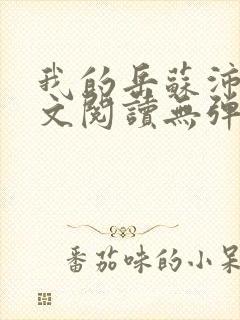 我的岳蘇沛
文閱讀無彈
番茄味的小呆